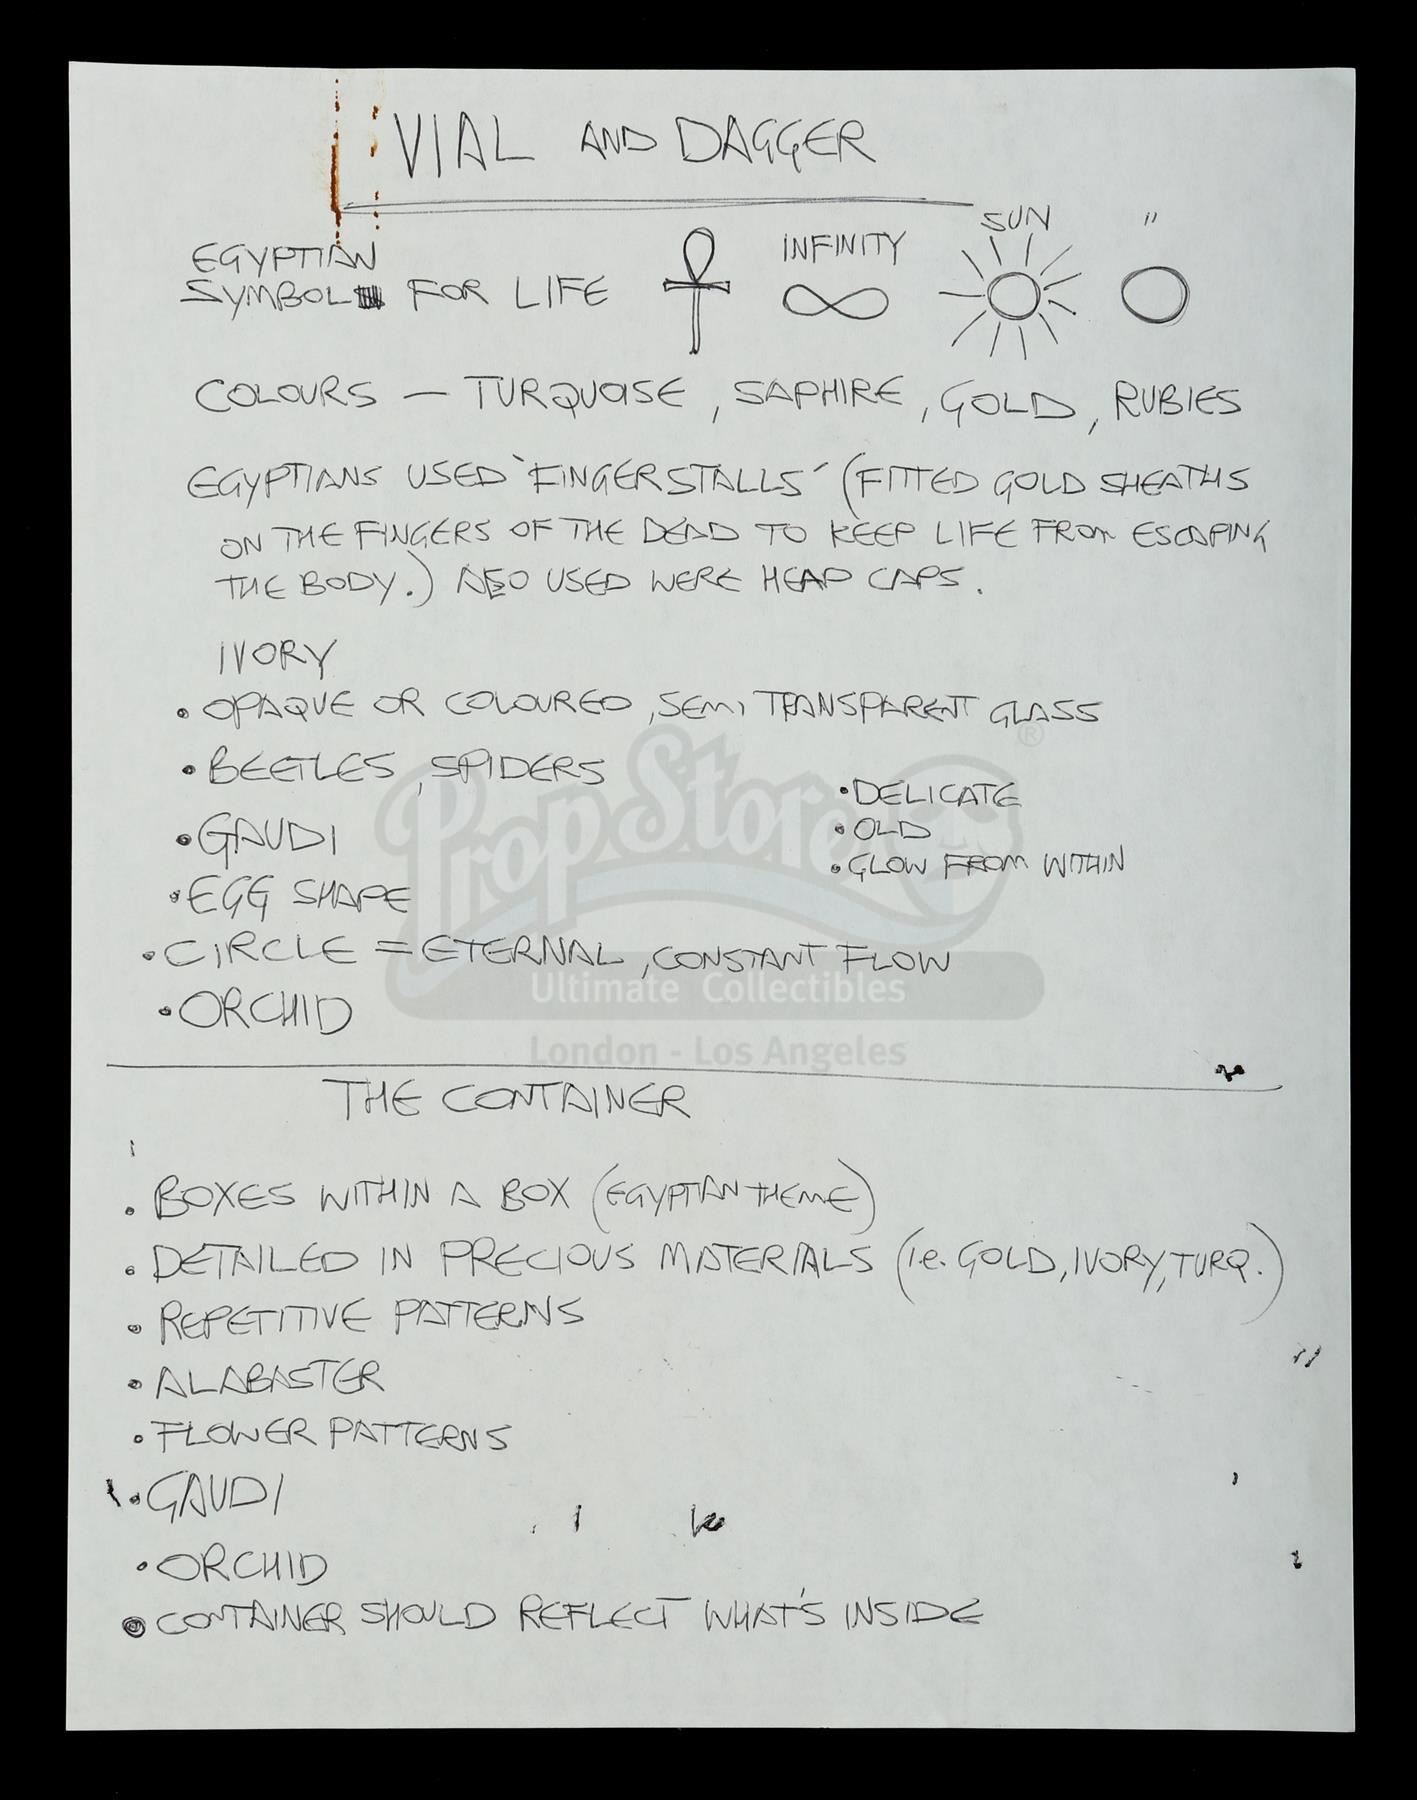 VIAL AND DAGGER
EGYPTIAN
SYMBOL FOR LIFE
INFINITY
SUN
"
COLOURS — TURQUOISE, SAPHIRE, GOLD, RUBIES
EGYPTIANS USED 'FINGERSTALLS' (FITTED GOLD SHEATHS
ON THE FINGERS OF THE DEAD TO KEEP LIFE FROM ESCAPING
THE BODY.) ALSO USED WERE HEAD CAPS.
IVORY
• OPAQUE OR COLOURED, SEMI TRANSPARENT GLASS
• BEETLES, SPIDERS
• GAUDI
• EGG SHAPE
• CIRCLE = ETERNAL, CONSTANT FLOW
• ORCHID
• DELICATE
• OLD
• GLOW FROM WITHIN
PropStore®
Ultimate Collectibles
London - Los Angeles
THE CONTAINER
• BOXES WITHIN A BOX (EGYPTIAN THEME)
• DETAILED IN PRECIOUS MATERIALS (i.e. GOLD, IVORY, TURQ.)
• REPETITIVE PATTERNS
• ALABASTER
• FLOWER PATTERNS
• GAUDI
• ORCHID
• CONTAINER SHOULD REFLECT WHAT'S INSIDE